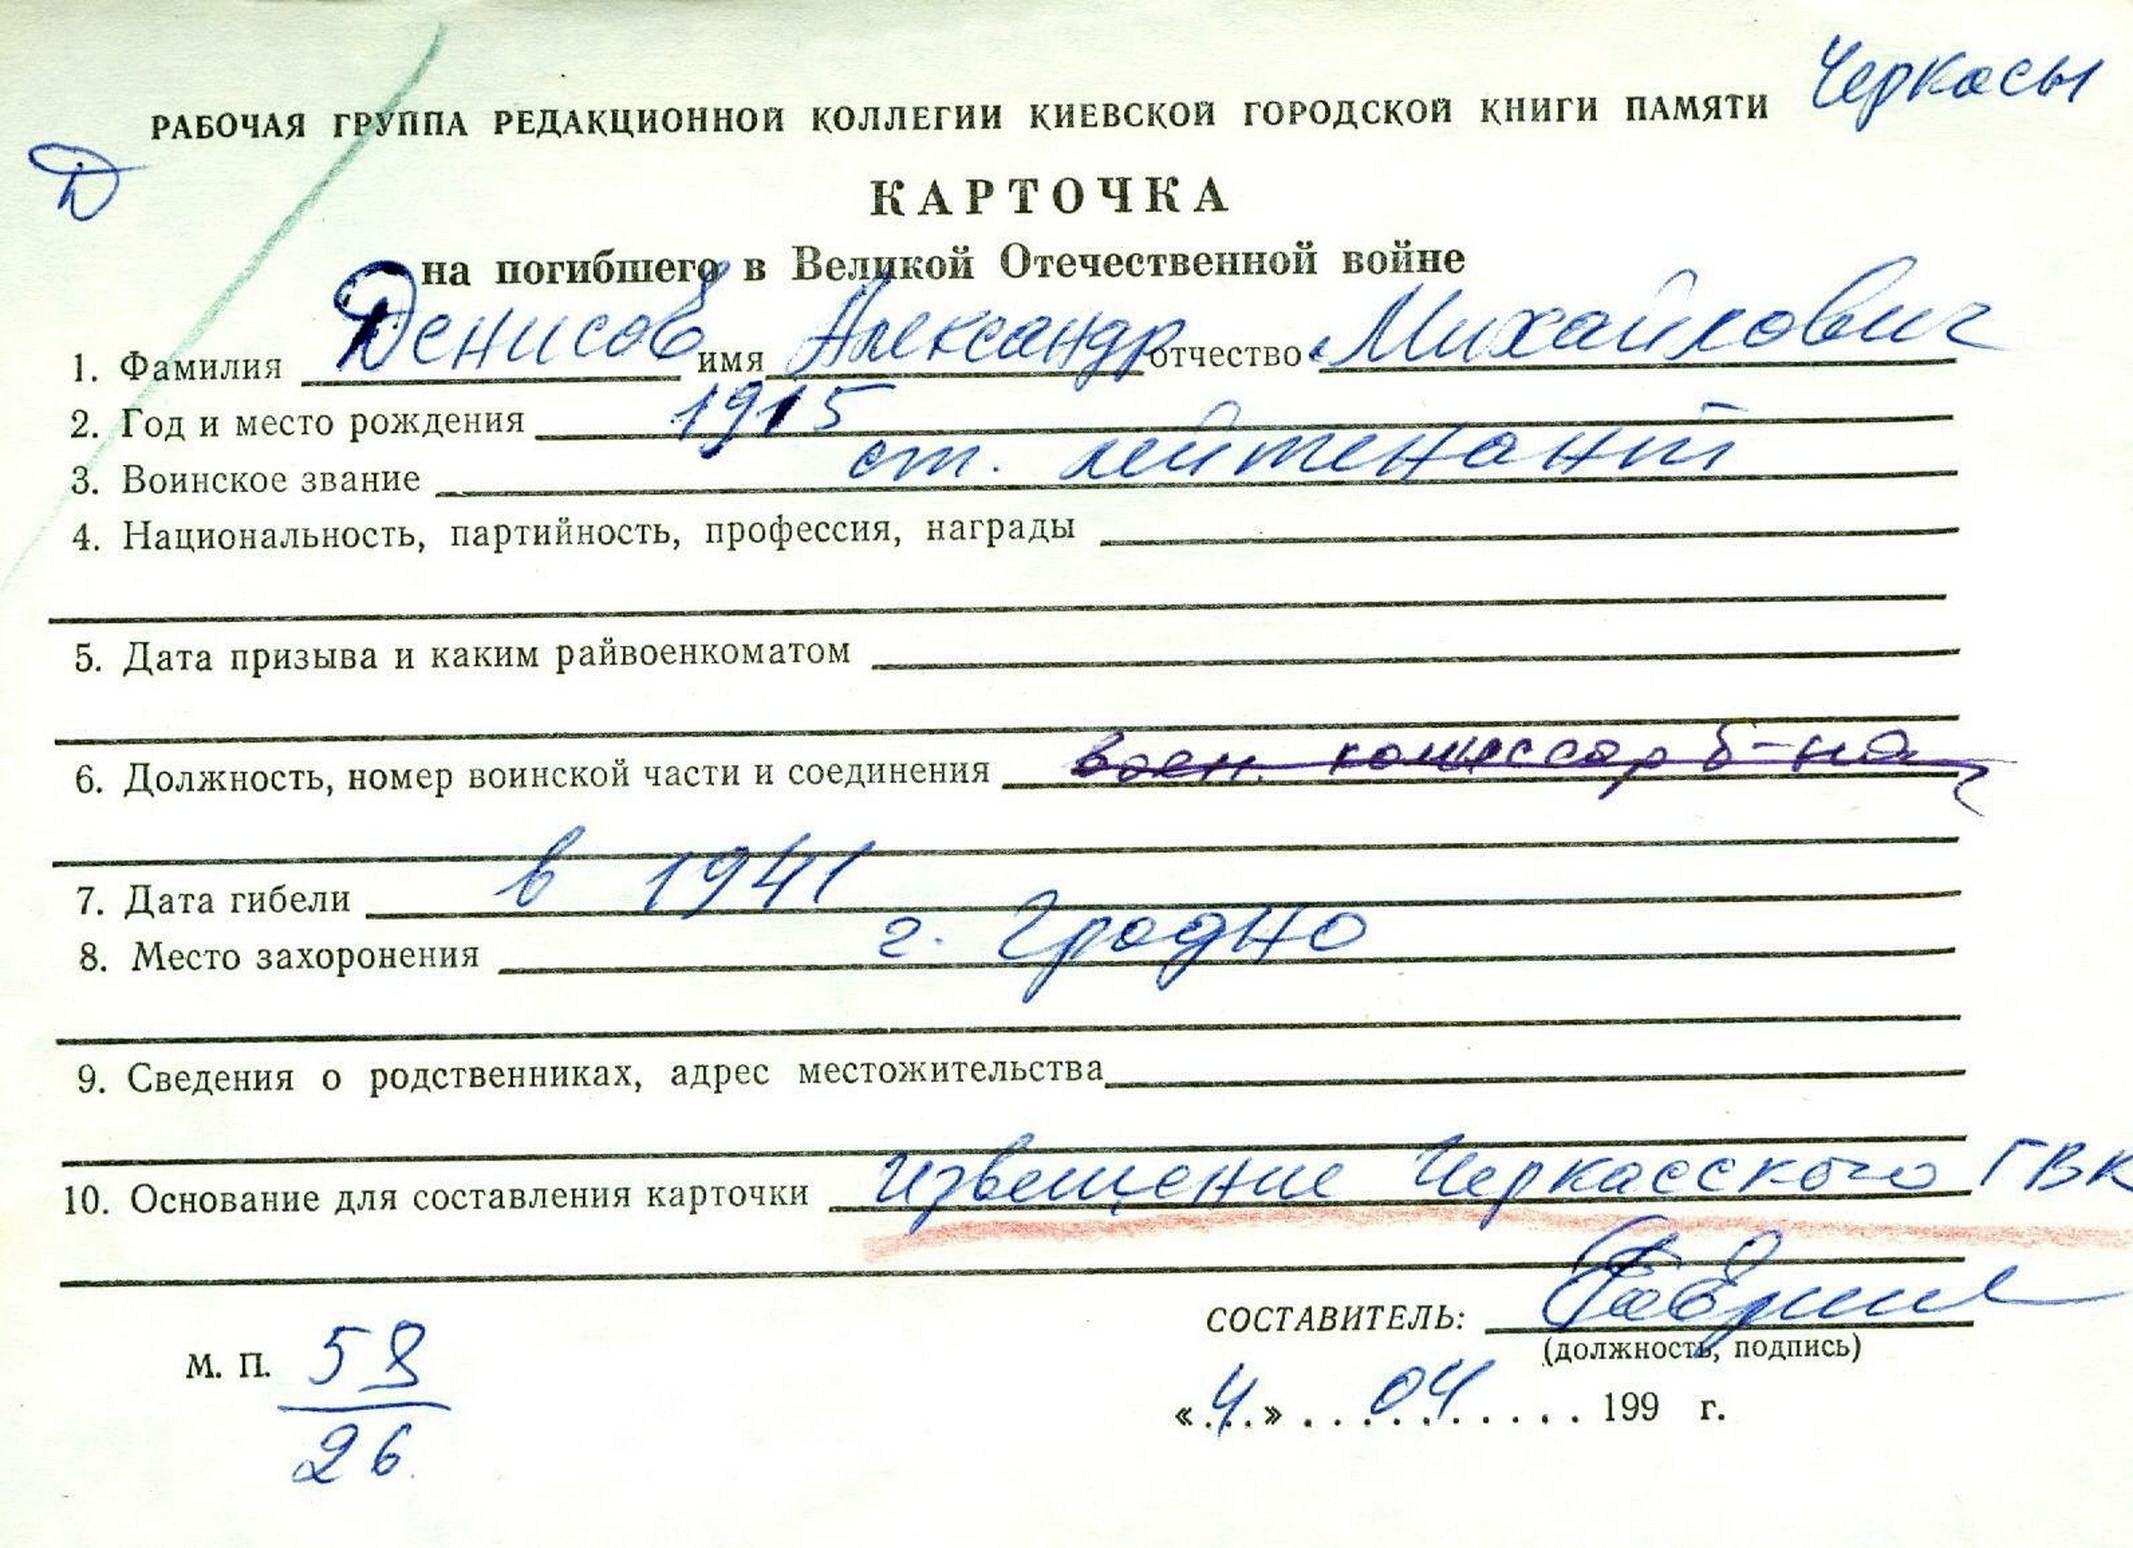 Черкасы
РАБОЧАЯ ГРУППА РЕДАКЦИОННОЙ КОЛЛЕГИИ КИЕВСКОЙ ГОРОДСКОЙ КНИГИ ПАМЯТИ
Д
КАРТОЧКА
на погибшего в Великой Отечественной войне
1. Фамилия Денисов имя Александр отчество Михайлович
2. Год и место рождения 1915
3. Воинское звание ст. лейтенант
4. Национальность, партийность, профессия, награды
5. Дата призыва и каким райвоенкоматом
6. Должность, номер воинской части и соединения воен. комиссар б-на
7. Дата гибели в 1941
8. Место захоронения г. Гродно
9. Сведения о родственниках, адрес местожительства
10. Основание для составления карточки извещение Черкасского ГВК
СОСТАВИТЕЛЬ:
(должность, подпись)
М. П. 58
26
«4» 04 199 г.